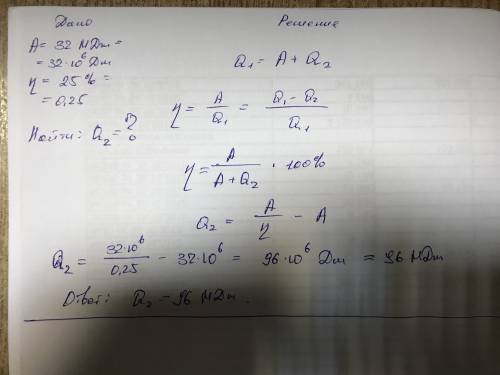 Дано
A = 32 МДж =
= 32·10⁶ Дж
η = 25 % =
= 0,25
Найти: Q₂ = ?
Решение
Q₁ = A + Q₂
η = A/Q₁ = (Q₁ - Q₂)/Q₁
η = A/(A + Q₂) · 100%
Q₂ = A/η - A
Q₂ = 32·10⁶/0,25 - 32·10⁶ = 96·10⁶ Дж = 96 МДж
Ответ: Q₂ = 96 МДж.